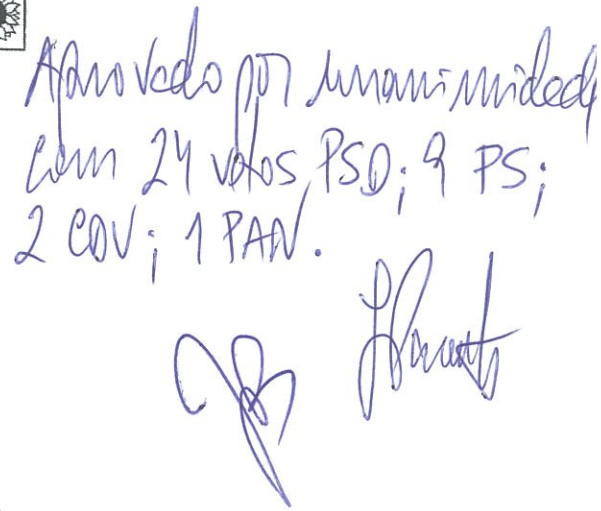 Aprovado por unanimidade
com 24 votos PSD; 9 PS;
2 CDU; 1 PAN.